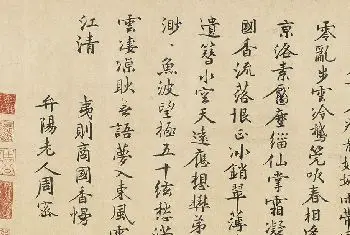 零亂步雲冷鵝筦吹春相逢
京洛素靨塵緇仙掌霜凝
國香流落恨正冰銷翠薄
遺簪水空天遠應想礬弟
渺〻魚波望極五十絃愁
雲淒涼耿無語夢入東風
江清
夷則商國香慢
弁陽老人周密